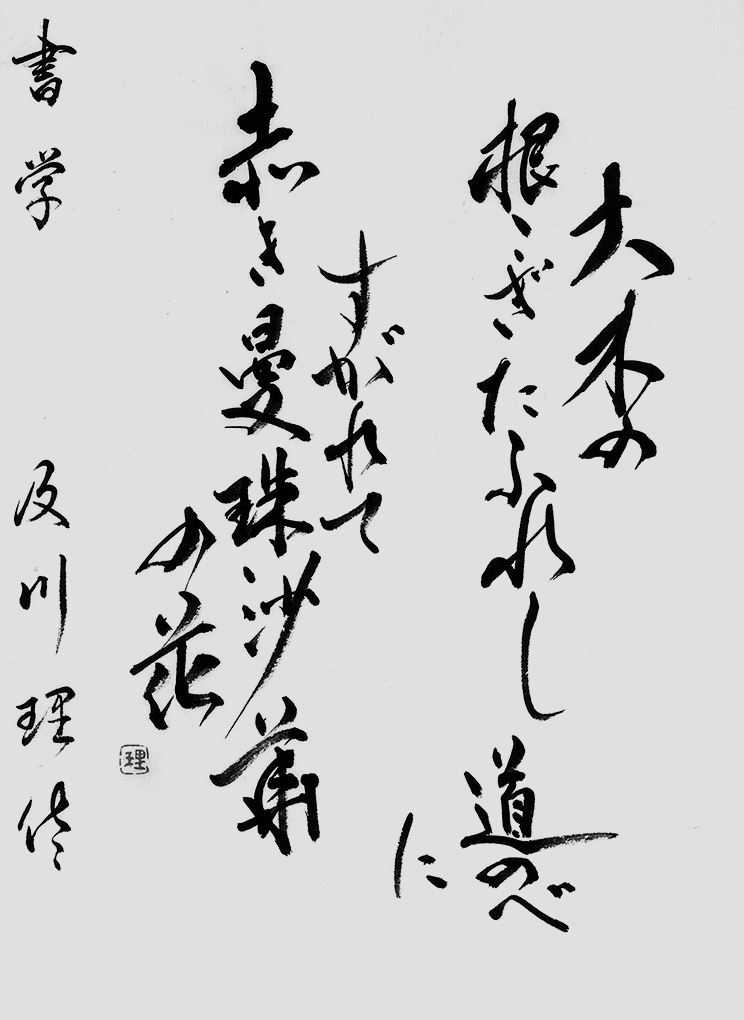 大木の
根こぎたふれし道のべ
に
すがれて
赤き曼珠沙華
の花
書学 及川理佳
理